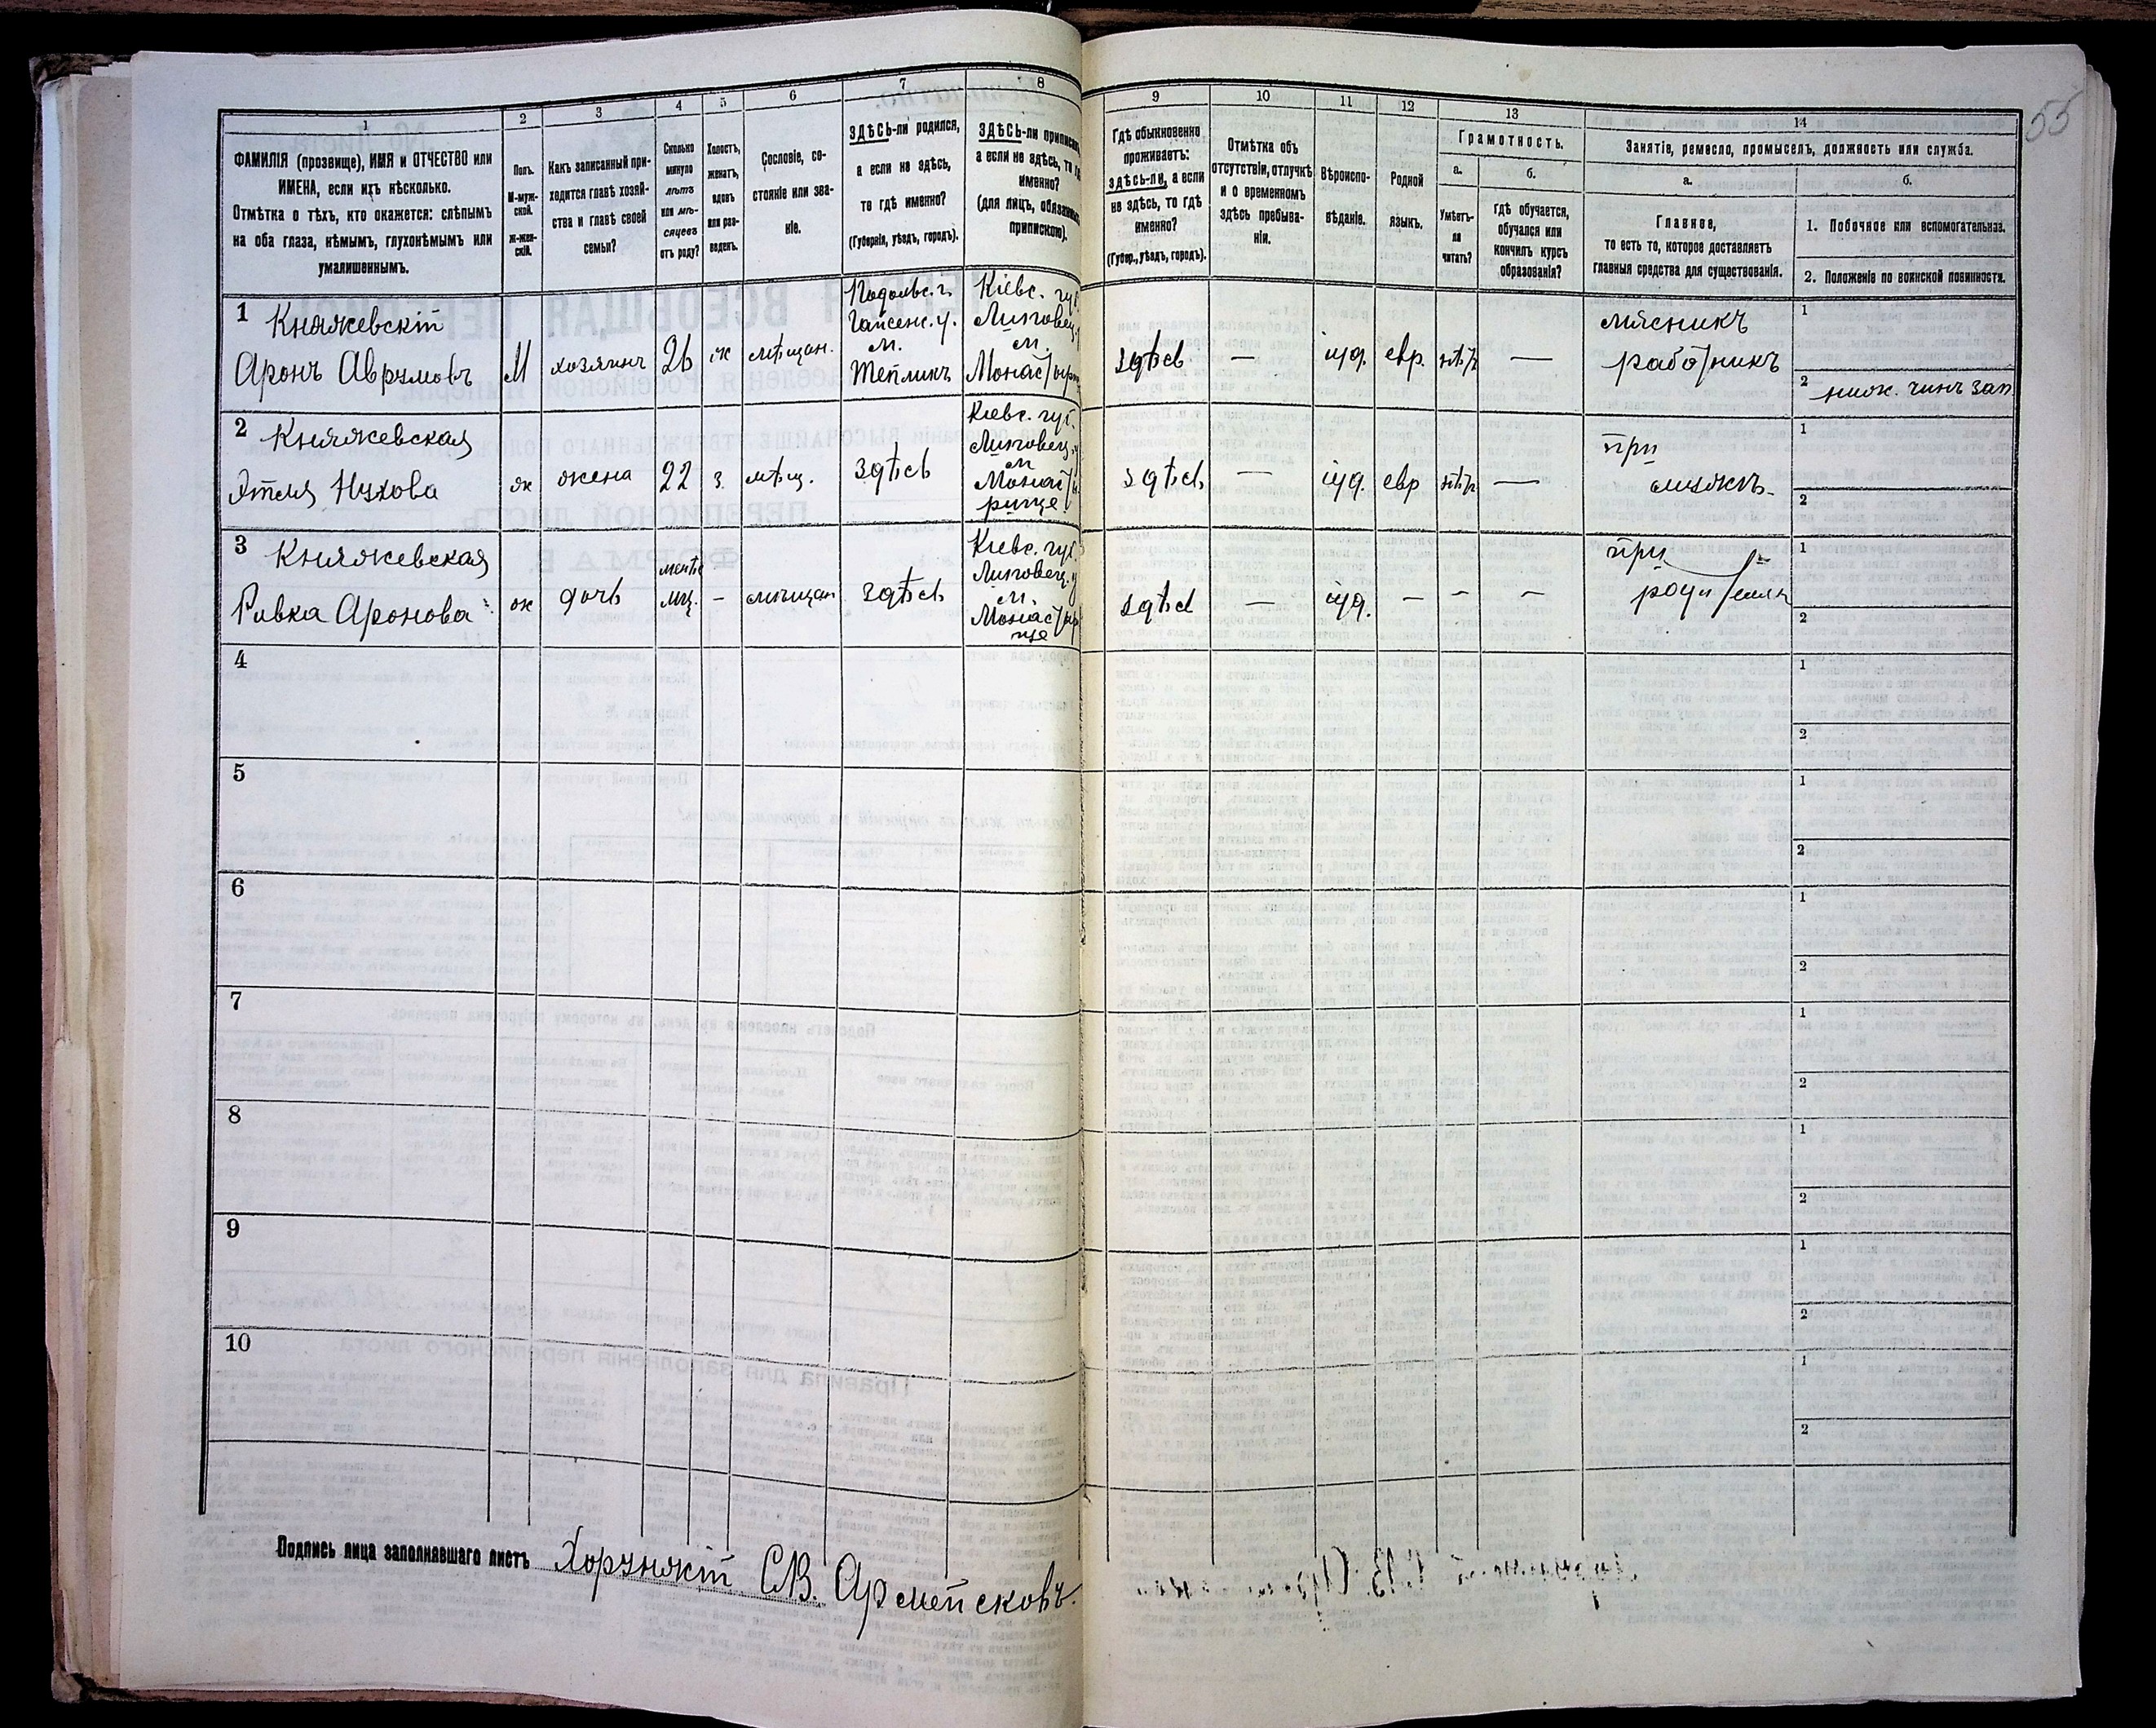 55
1 2 3 4 5 6 7 8 9 10 11 12 13 14
ФАМИЛІЯ (прозвище), ИМЯ и ОТЧЕСТВО или
ИМЕНА, если ихъ нѣсколько.
Отмѣтка о тѣхъ, кто окажется: слѣпымъ
на оба глаза, нѣмымъ, глухонѣмымъ или
умалишеннымъ.
Полъ.
М-муж-
ской.
Ж-жен-
скій.
Какъ записанный при-
ходится главѣ хозяй-
ства и главѣ своей
семьи?
Сколько
минуло
лѣтъ
или мѣ-
сяцевъ
отъ роду?
Холостъ,
женатъ,
вдовъ
или раз-
веденъ.
Сословіе, со-
стояніе или зва-
ніе.
ЗДѢСЬ-ли родился,
а если не здѣсь,
то гдѣ именно?
(Губернія, уѣздъ, городъ).
ЗДѢСЬ-ли
а если не здѣсь, то
именно?
(для лицъ,
припискою).
Гдѣ обыкновенно
проживаетъ:
здѣсь-ли, а если
не здѣсь, то гдѣ
именно?
(Губер., уѣздъ, городъ).
Отмѣтка объ
отсутствіи, отлучкѣ
и о временномъ
здѣсь пребыва-
ніи.
Вѣроиспо-
вѣданіе.
Родной
языкъ.
Грамотность.
а.
Умѣетъ-
ли
читать?
б.
гдѣ обучается,
обучался или
кончилъ курсъ
образованія?
Занятіе, ремесло, промыселъ, должность или служба.
а.
Главное,
то есть то, которое доставляетъ
главныя средства для существованія.
б.
1. Побочное или вспомогательное.
2. Положеніе по воинской повинности.
1 Княжевскій
Аронъ Аврумовъ
М
хозяинъ
26
ж
мѣщан.
Подольс. г.
Гайсен. у.
м.
Тепликъ
Кіевс. губ.
Липовец.
м.
здѣсь
—
іуд.
евр.
—
мясникъ
работникъ
1
2 ниж. чинъ зап
2 Княжевская
Нухова
ж
жена
22
з.
мѣщ.
здѣсь
Кіевс. губ.
Липовец.
м
рище
здѣсь
—
іуд.
евр
—
при
мужѣ
1
2
3 Княжевская
Ривка Аронова
ж
дочь
–
мѣщан
здѣсь
Кіевс. губ.
Липовец. у
м.
ще
здѣсь
—
іуд.
–
–
–
при
1
2
4
1
2
5
1
2
6
1
2
7
1
2
8
1
2
9
1
2
10
1
2
Подпись лица заполнявшаго листъ Хорунжій С.В. Армейсковъ.